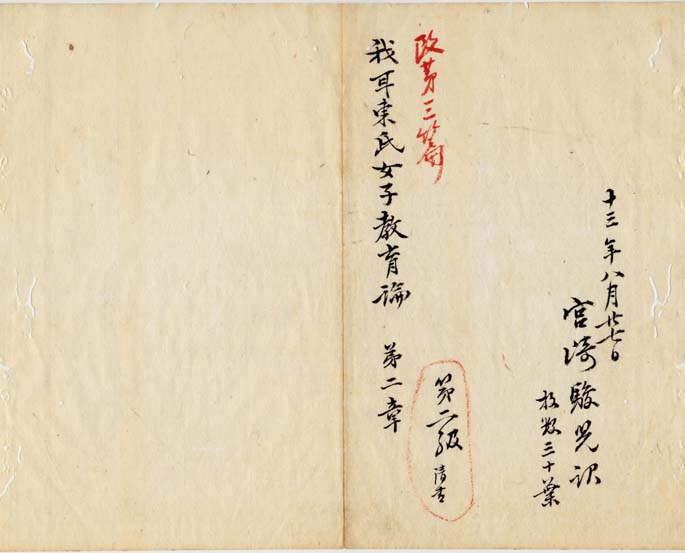 十三年八月廿七日
宮崎駿児訳
枚数三十葉
第二級 清書
改第三篇
我耳東氏女子教育論 第二章